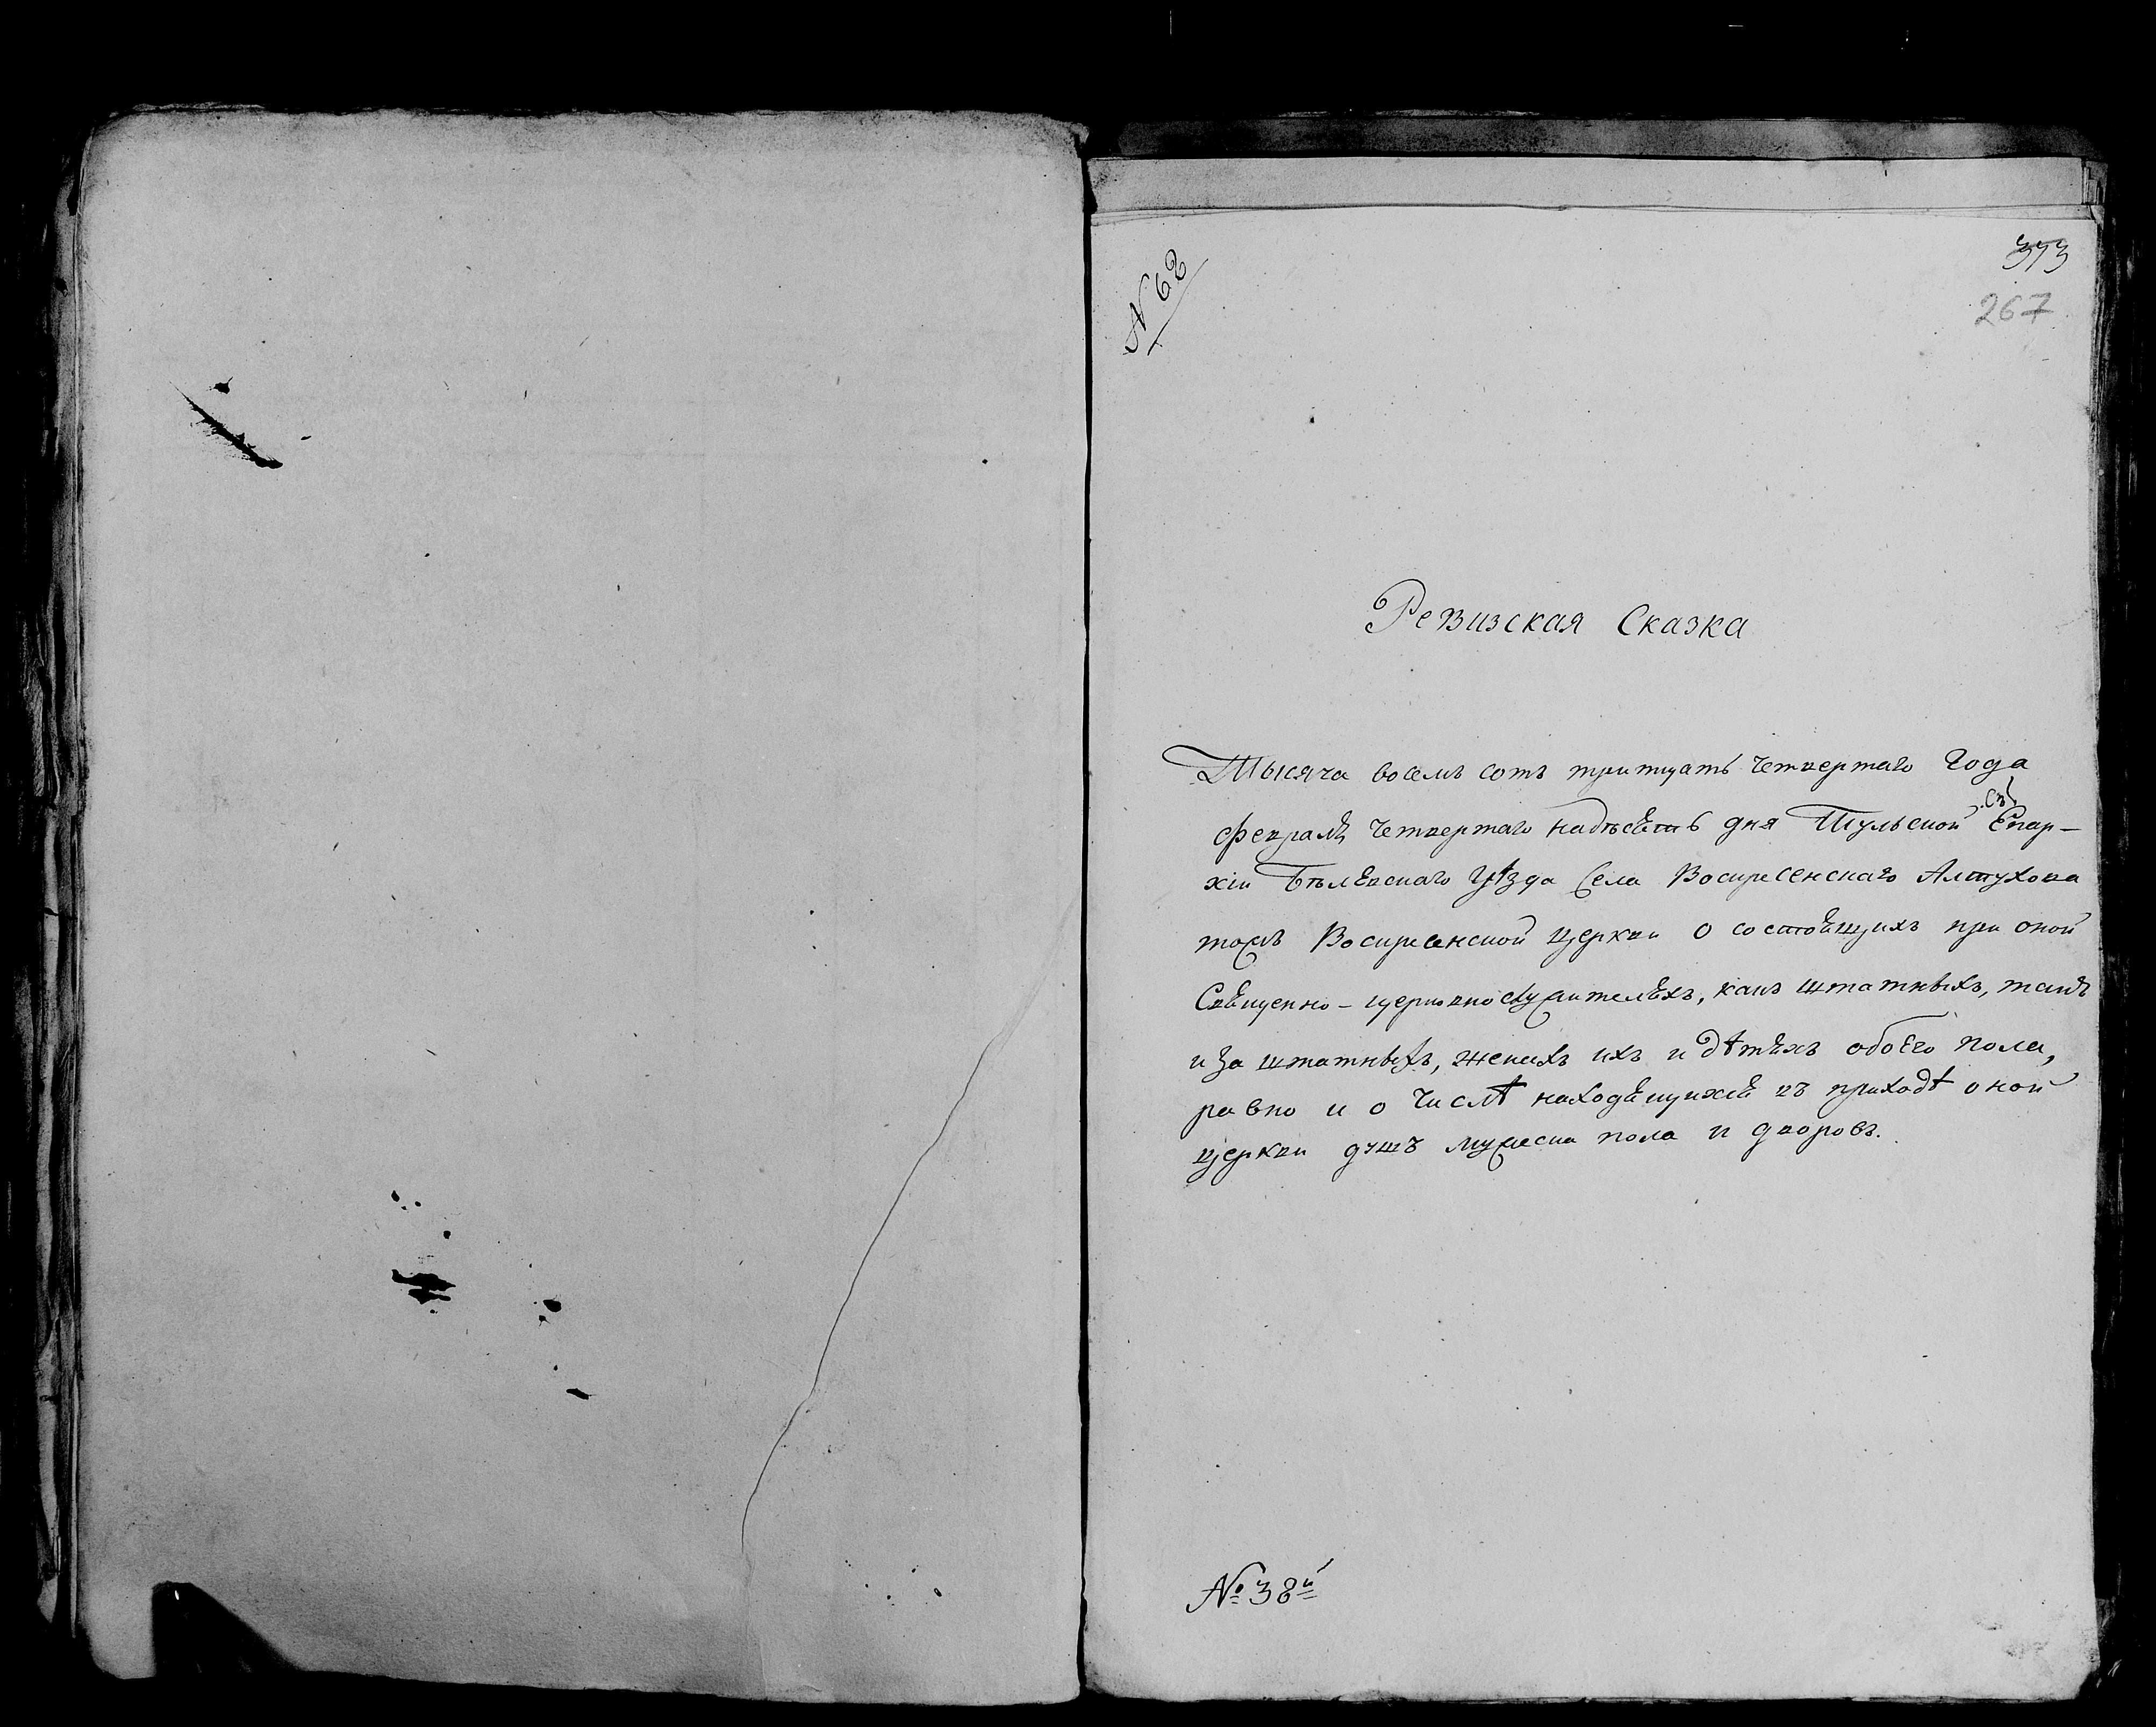 373
267
N 62
Ревизская Сказка
Тысяча восемъ сотъ тритцать четвертаго года
февраля четвертаго надесять дня Тульской Епар-
хіи Бѣлевскаго Уѣзда Села Воскресенскаго Алтухова
тожъ Воскресенской церкви о состоящихъ при оной
Священно-церковнослужителяхъ, какъ штатныхъ, такъ
и за штатныхъ, женахъ ихъ и дѣтяхъ обоего пола,
равно и о числѣ находящихся въ приходѣ оной
церкви душъ мужеска пола и дворовъ.
№ 38й